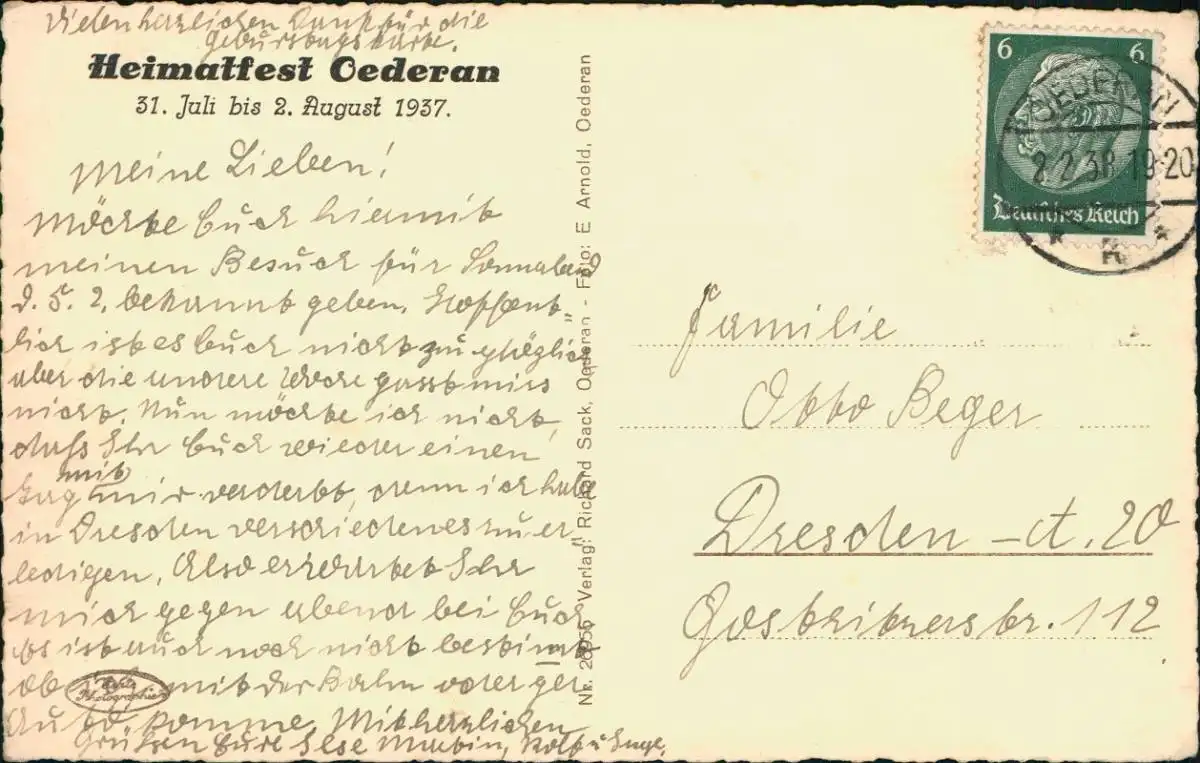 Vielen herzlichen Dank für die
Geburtstagskarte.
Heimatfest Oederan
31. Juli bis 2. August 1937.
Meine Lieben!
Möchte Euch hiermit
meinen Besuch für Sonnabend
d. 5. 2. bekannt geben. Hoffent-
lich ist es Euch nicht zu
aber die andere Woche passt mirs
nicht. Nun möchte ich nicht,
daß Ihr Euch wieder einen
Tag mit mir verderbt, denn ich habe
in Dresden verschiedenes zu er-
ledigen. Also erwartet Ihr
mich gegen abend bei Euch
Es ist auch noch nicht bestimmt
ob ich mit der Bahn oder per
Auto komme. Mit herzlichen
Grüßen Eure Ilse Martin, Rolf u Inge.
Echte Photographie
Nr. 28956 Verlag: Richard Sack, Oederan - Foto: E Arnold, Oederan
6 6
Deutsches Reich
OEDERAN
2.2.38.19-20
Familie
Otto Beger
Dresden - A. 20
Gostritzerstr. 112